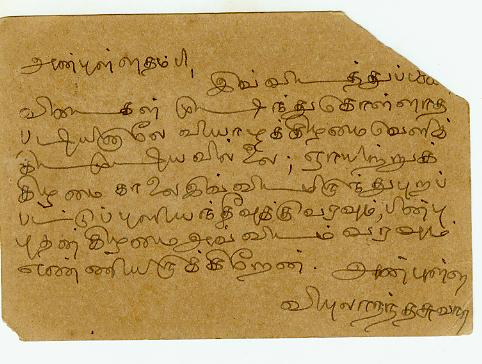 அன்புள்ள தம்பி,
இவ்விடத்துப்
விடைகள் முடிந்துகொள்ளாத
படியினாலே வியாழக்கிழமை வெளிக்
கிட முடியவில்லை; ஞாயிற்றுக்
கிழமை காலை இவ்விடமிருந்து புறப்
பட்டுப் புளியந்தீவுக்கு வரவும், பின்பு
புதன்கிழமை அவ்விடம் வரவும்
எண்ணியிருக்கிறேன்.
அன்புள்ள
விபுலாநந்த சுவாமி